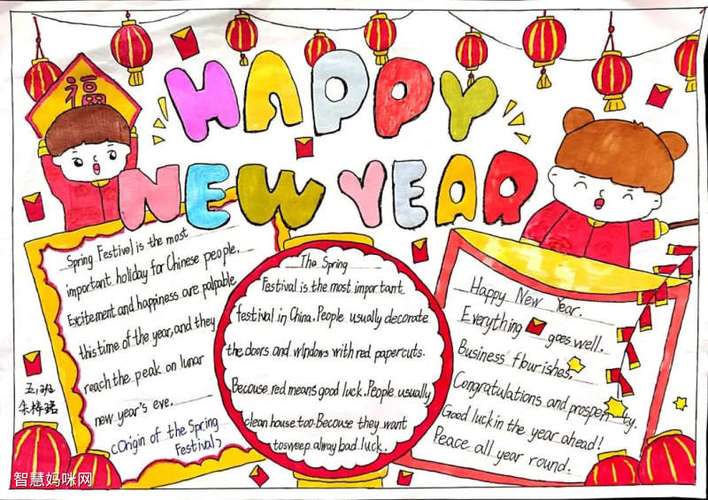 福
HAPPY
NEW YEAR
Spring Festivel is the most
important holiday for Chinese people.
Excitement and happiness are palpable
this time of the year, and they
reach the peak on lunar
new year's eve.
(Origin of the Spring
Festival)
The Spring
Festival is the most important
festival in China. People usually decorate
the doors and windows with red papercuts.
Because red means good luck. People usually
clean house too. Because they want
to sweep alway bad luck.
Happy New Year.
Everything goes well.
Business flourishes,
Congratulations and prosperity.
Good luck in the year ahead!
Peace all year round.
智慧妈咪网